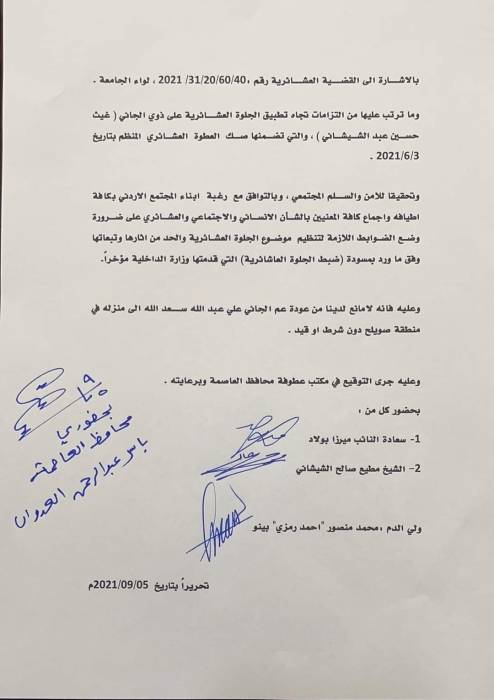 بالاشارة الى القضية العشائرية رقم ،31/20/60/40/ 2021 ، لواء الجامعة .
وما ترتب عليها من التزامات تجاه تطبيق الجلوة العشائرية على ذوي الجاني ( غيث
حسين عبد الشيشاني ) ، والتي تضمنها صك العطوة العشائري المنظم بتاريخ
2021/6/3 .
وتحقيقا للامن والسلم المجتمعي ، وبالتوافق مع رغبة ابناء المجتمع الاردني بكافة
اطيافه واجماع كافة المعنيين بالشأن الانساني والاجتماعي والعشائري على ضرورة
وضع الضوابط اللازمة لتنظيم موضوع الجلوة العشائرية والحد من اثارها وتبعاتها
وفق ما ورد بمسودة (ضبط الجلوة العاشائرية) التي قدمتها وزارة الداخلية مؤخراً.
وعليه فانه لامانع لدينا من عودة عم الجاني علي عبد الله سعد الله الى منزله في
منطقة صويلح دون شرط او قيد .
وعليه جرى التوقيع في مكتب عطوفة محافظ العاصمة وبرعايته .
بحضور كل من ،
1- سعادة النائب ميرزا بولاد
2- الشيخ مطيع صالح الشيشاني
ولي الدم ، محمد منصور "احمد رمزي" بينو
تحريراً بتاريخ 2021/09/05م
بحضوري
محافظ العاصمة
ياسر عبدالرحمن العدوان